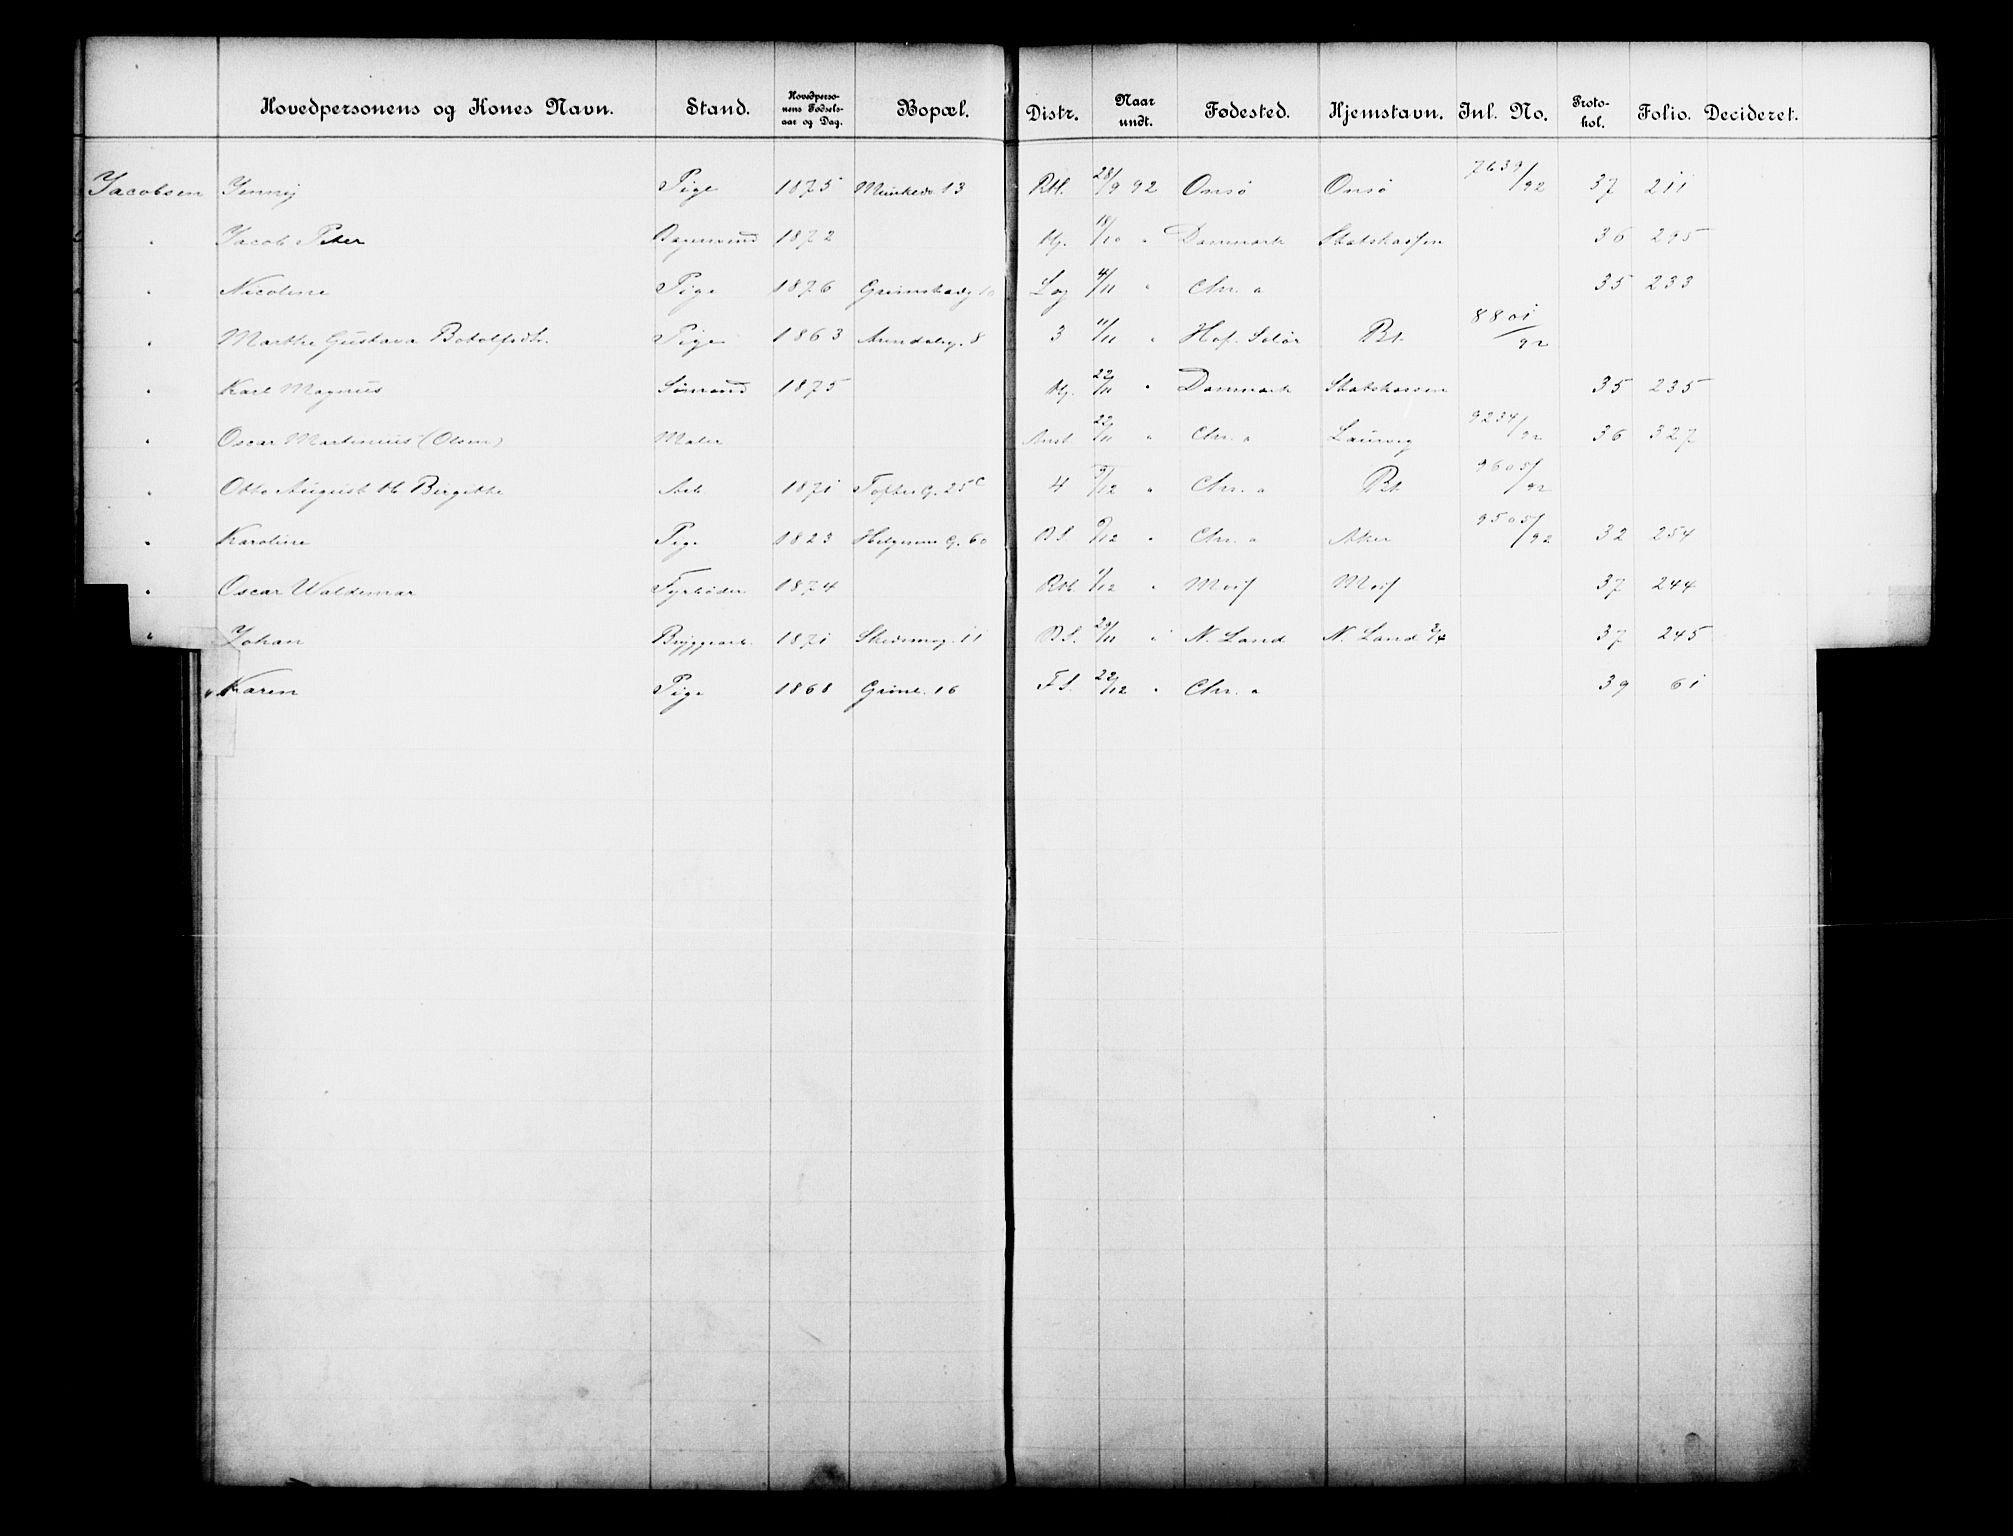 Hovedpersonens og Kones Navn. Stand. Hovedpersonens Fødselsaar og Dag. Bopæl. Distr. Naar undt. Fødested. Hjemstavn. Inl. No. Protokol. Folio. Decideret.
Jacobsen Jenny Pige 1875 13 Rtl. 28/9 92 Onsø Onsø 7639/92 37 211
" Jacob Peter 1872 Hj. 18/10 " Danmark Statskassen 36 295
" Nicoline Pige 1876 10 Lög 4/11 " Chr. a 35 233
" Marthe Gustava Pige 1863 Arendalsg. 8 3 11/11 " Hof. Solør Bt. 8801/92
" Karl Magnus Sømand 1875 Hj. 22/11 " Danmark Statskassen 35 235
" Oscar Martinius (Olsen) Maler 22/11 " Chr. a Laurvig 9234/92 36 327
" Otto August & Birgitte Arb. 1871 Tofteg. 25c 4 9/12 " Chr. a Bt. 9605/92
" Karoline Pige 1823 60 B.S. 9/12 " Chr. a Aker 9505/92 32 254
" Oscar Waldemar Fyrbøder 1874 Rtl. 1/12 " Moss Moss 37 244
" Johan Bryggearb. 1871 11 B.S. 29/11 " N. Land N. Land 3/4 37 245
" Karen Pige 1868 Grünl. 16 F.S. 22/12 " Chr. a 39 61